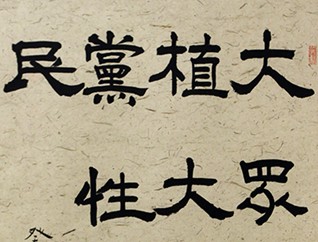 大眾
植大
黨性
民